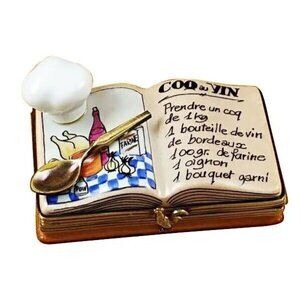 COQ au VIN
Prendre un coq
de 1kg
1 bouteille de vin
de bordeaux
100gr. de farine
1 oignon
1 bouquet garni